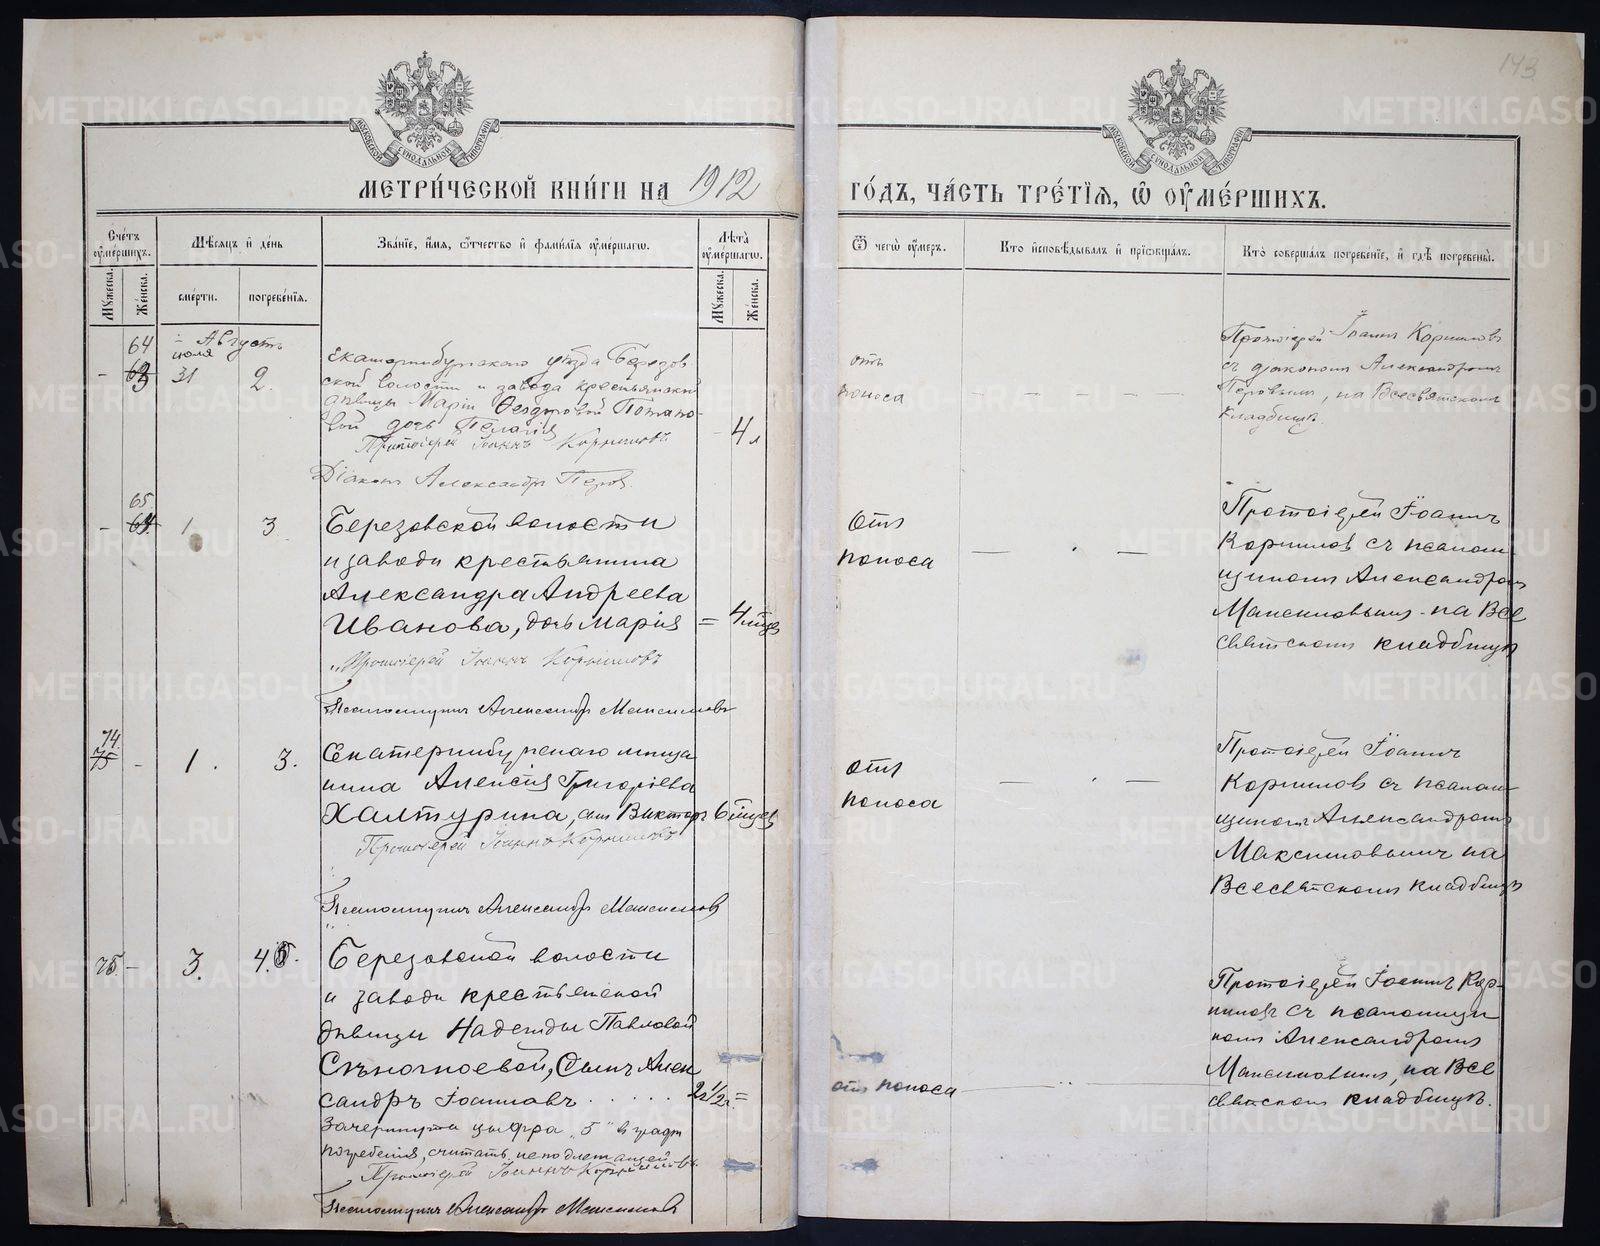 143
МЕТРИЧЕСКОЙ КНИГИ НА 1912
ГОДЪ, ЧАСТЬ ТРЕТІЯ, Ѿ ОУМЕРШИХЪ.
Счетъ оумершихъ.
Мѣсяцъ и день
Званіе, имя, отчество и фамилія оумершагѡ.
Лѣта оумершагѡ.
Ѿ чегѡ оумеръ.
Кто исповѣдывалъ и пріобщалъ.
Кто совершалъ погребеніе, и гдѣ погребены.
Мужеска.
Женска.
смерти.
погребенія.
Мужеска.
Женска.
Августъ
64
іюля
- 63 31 2.
Екатеринбургскаго уѣзда Березов
ской волости и завода крестьянской
дѣвицы Маріи Ѳедоровой Потапо-
вой дочь Пелагія
4 л
Протоіерей Іоаннъ Корниловъ
Діаконъ Александръ Перов.
отъ
поноса
Протоіерей Іоаннъ Корнилов
съ діакономъ Александромъ
Перовымъ, на Всесвятскомъ
кладбищѣ.
65
- 64. 1. 3
Березовской волости
и завода крестьянина
Александра Андреева
Иванова, дочь Марія = 4 мѣся
Протоіерей Іоаннъ Корниловъ
Псаломщикъ Александръ Максимовъ
Отъ
поноса
Протоіерей Іоаннъ
Корнилов съ псалом
щикомъ Александром
Максимовымъ на Все
святскомъ кладбищѣ
74.
75 - 1. 3.
Екатеринбургскаго мѣща
нина Алексія Григоріева
Халтурина, сын Викторъ 6 мѣсяцев
Протоіерей Іоаннъ Корниловъ
Псаломщикъ Александръ Максимов
отъ
поноса
Протоіерей Іоаннъ
Корнилов съ псалом
щикомъ Александромъ
Максимовымъ на
Всесвятскомъ кладбищѣ
75. - 3. 4. 5.
Березовской волости
и завода крестьянской
дѣвицы Надежды Павловой
Сынъ Алек
сандръ Іоанновъ . . . . . 2 1/2 л. =
Зачеркнута цыфра „5" в графѣ
погребенія, считать неподлежащей
Протоіерей Іоаннъ Корниловъ
Псаломщикъ Александръ Максимовъ
отъ поноса
Протоіерей Іоаннъ Кор-
ниловъ съ псаломщи
комъ Александромъ
Максимовымъ, на Все
святскомъ кладбищѣ.
METRIKI.GASO-URAL.RU